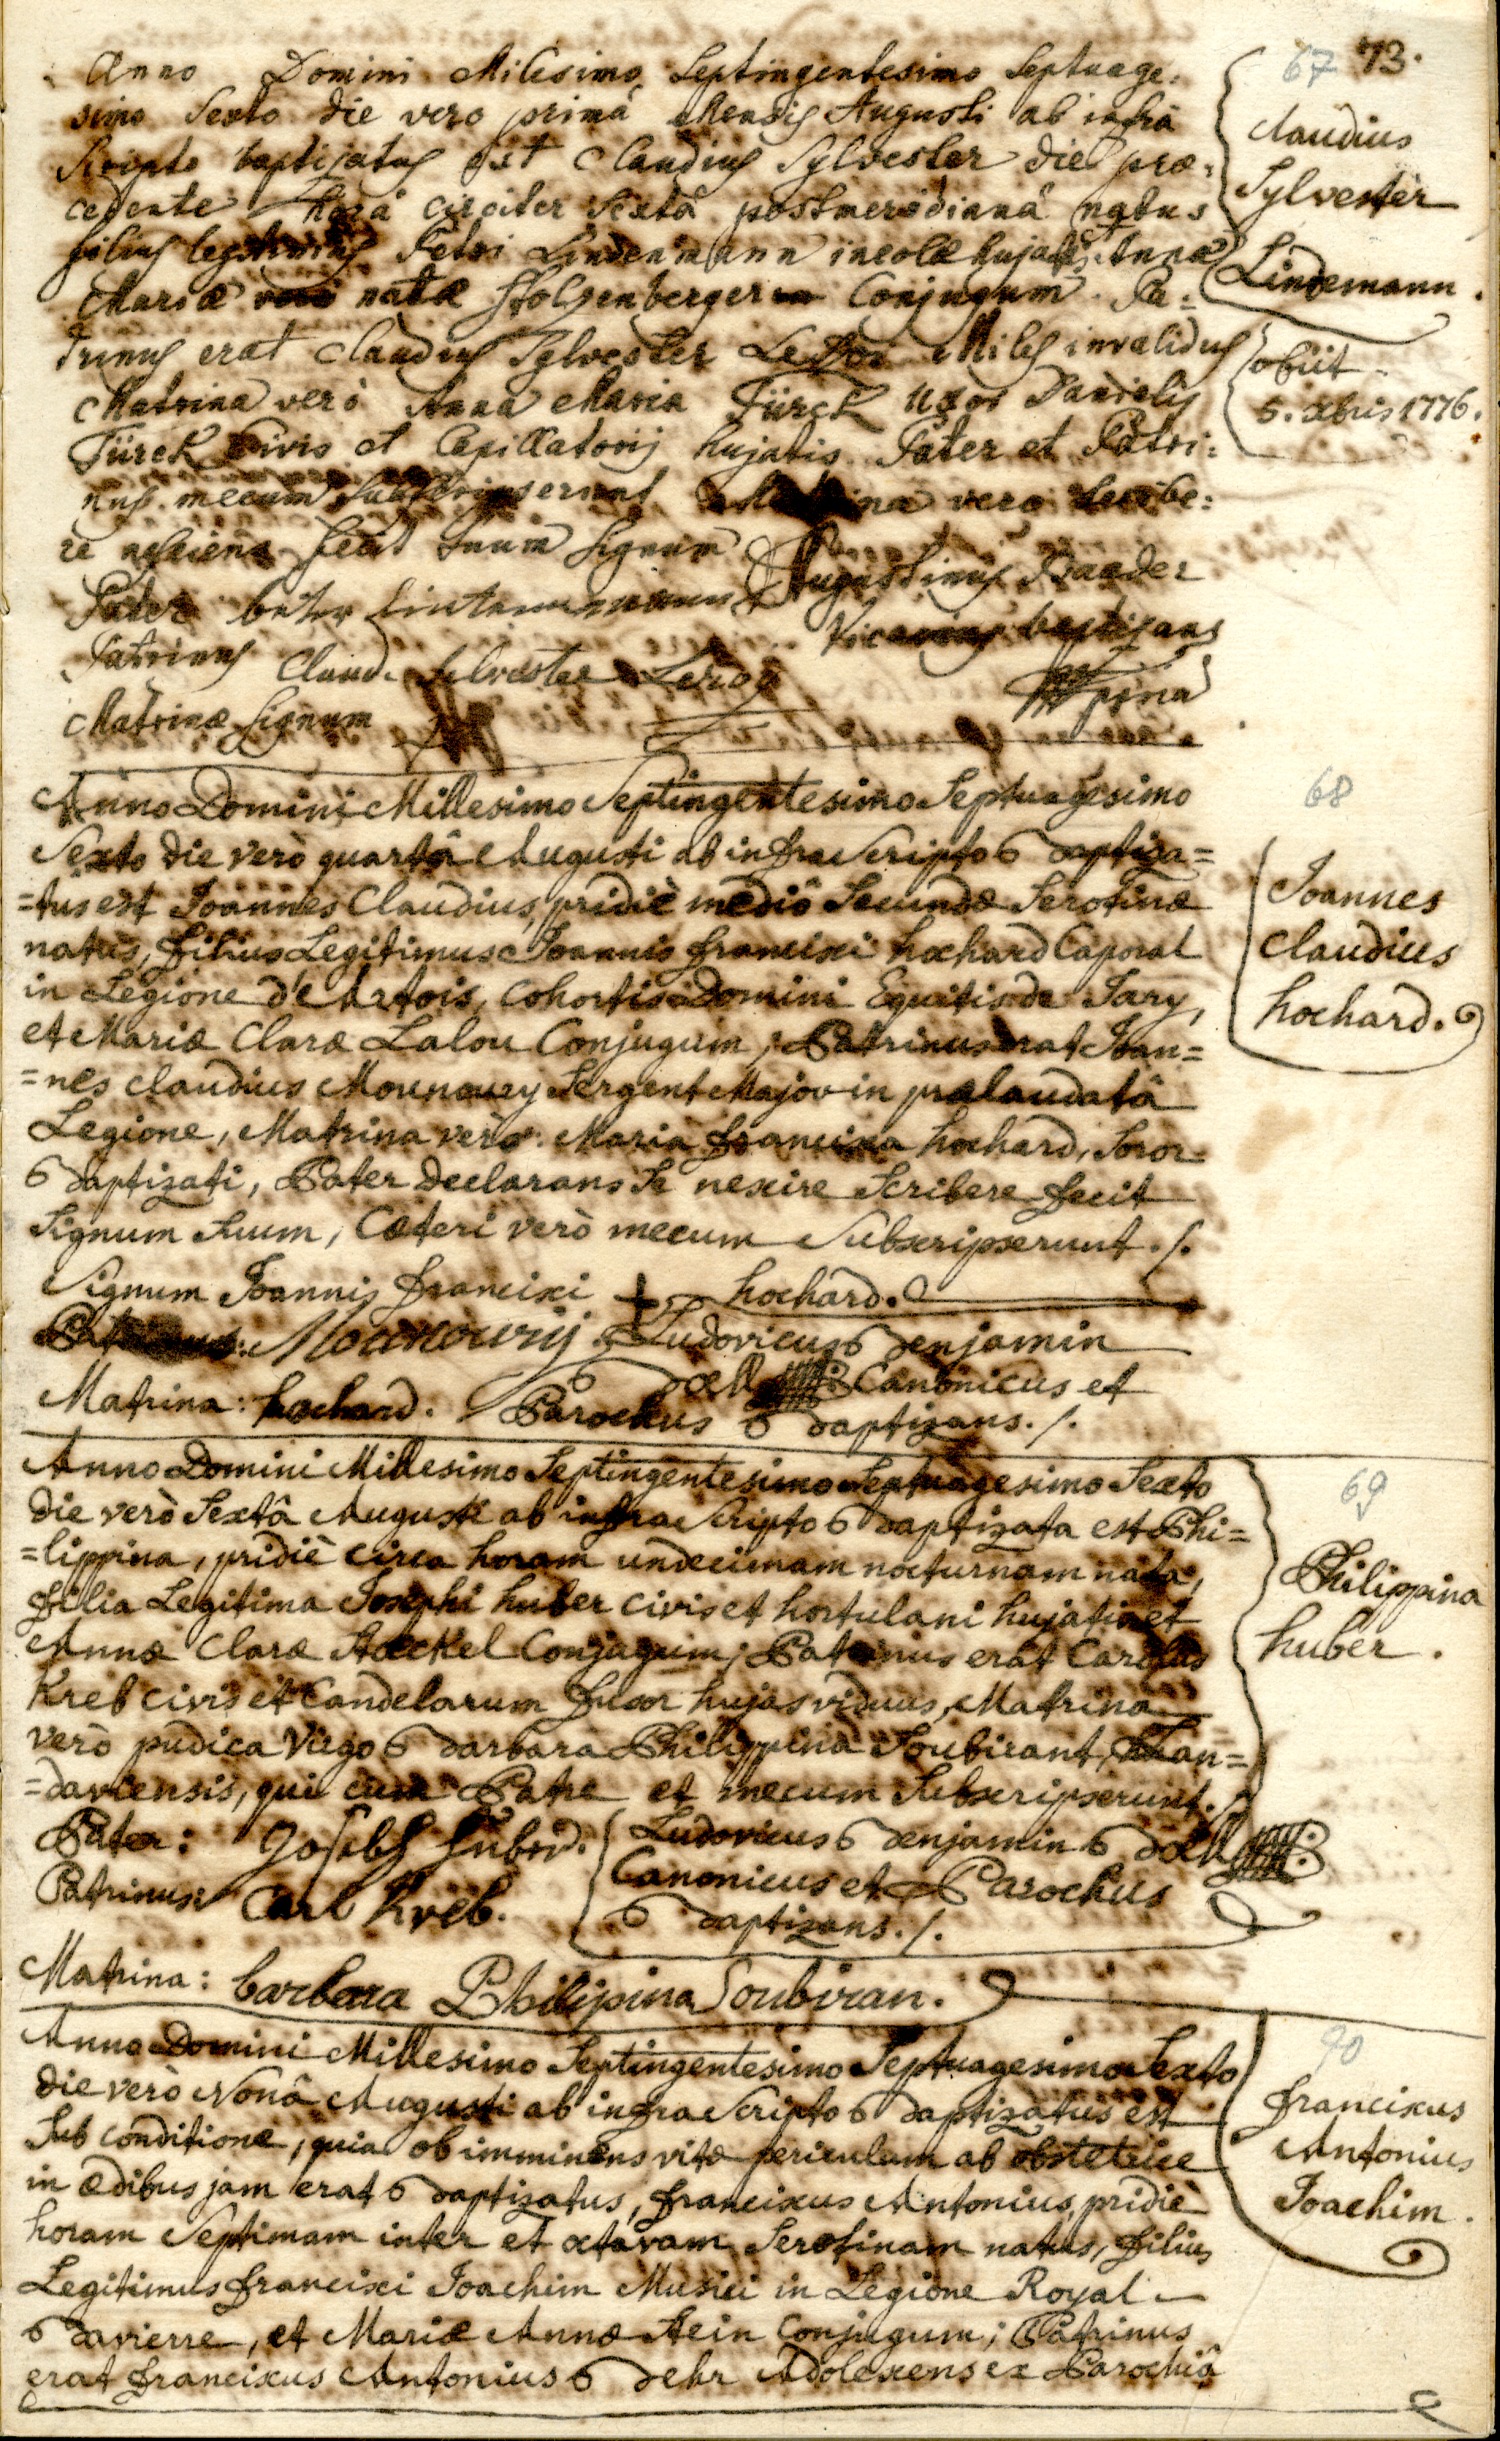 73.
67
Anno Domini Milesimo Septingentesimo Septuage-
simo Sexto die vero primâ Mensis Augusti ab infrà
Scripto baptizatus est Claudius Sylvester die præ-
cedente horâ circiter Sextâ postmeridianâ natus
filius legitimus Petri Lindenmann incolæ hujatis et Annæ
Mariæ natæ Holzenberger Conjugum. Pa-
trinus erat Claudius Sylvester Miles invalidus
Matrina verò Anna Maria Türck uxor Danielis
Türck Civis et Capillatoris hujatis. Pater et Patri-
nus mecum Subscripserunt vero Scribe-
re nesciens fecit Suum Signum
Augustinus Baeder
Vicarius baptizans
Pater
Patrinus Claude Silvester Leroy
Matrinæ Signum
Claudius
Sylvester
Lindemann.
obiit
5. Xbris 1776.
68
Anno Domini Millesimo Septingentesimo Septuagesimo
Sexto die verò quartâ Augusti ab infra Scripto Baptiza=
=tus est Joannes Claudius, pridiè mediô Secundæ Serotinæ
natus, filius Legitimus Joannis francisci hochard Caporal
in Legione d'Artois, Cohortis Domini Equitis de Jary,
et Mariæ Claræ Lalou Conjugum; Patrinus erat Joan=
=nes Claudius Mounoury Sergent Major in prælaudatâ
Legione, Matrina verò Maria francisca hochard, Soror
Baptizati, Pater declarans Se nescire Scribere fecit
Signum Suum, Cæteri verò mecum Subscripserunt./.
Signum Joannis francisci + hochard.
Mounoury Ludovicus Benjamin
Canonicus et
Matrina: hochard. Parochus Baptizans./.
Joannes
Claudius
hochard.
69
Anno Domini Millesimo Septingentesimo Septuagesimo Sexto
die verò Sextâ Augusti ab infra Scripto Baptizata est Phi=
=lippina, pridiè circa horam undecimam nocturnam nata,
filia Legitima Josephi huber civis et hortulani hujatis et
Annæ Claræ Stæckel Conjugum; Patrinus erat Carolus
Kreb civis et Candelarum fusor hujas viduus, Matrina
verò pudica Virgo Barbara Philippina Soubirant, Lan=
=daviensis, qui cum Patre et mecum Subscripserunt./.
Pater: Joseph huber.
Patrinus: Carl Kreb.
Ludovicus Benjamin
Canonicus et Parochus
Baptizans./.
Matrina: barbara Philipina Soubiran.
Philippina
huber.
70
Anno Domini Millesimo Septingentesimo Septuagesimo Sexto
die verò Nonâ Augusti ab infra Scripto Baptizatus est
Sub conditione, quia ob imminens vitæ periculum ab obstetrice
in ædibus jam erat Baptizatus, franciscus Antonius, pridiè
horam Septimam inter et octavam Serotinam natus, filius
Legitimus francisci Joachim Musici in Legione Royal
Bavierre, et Mariæ Annæ Stein Conjugum; Patrinus
erat franciscus Antonius Behr Adolescens ex Parochiâ
franciscus
Antonius
Joachim.